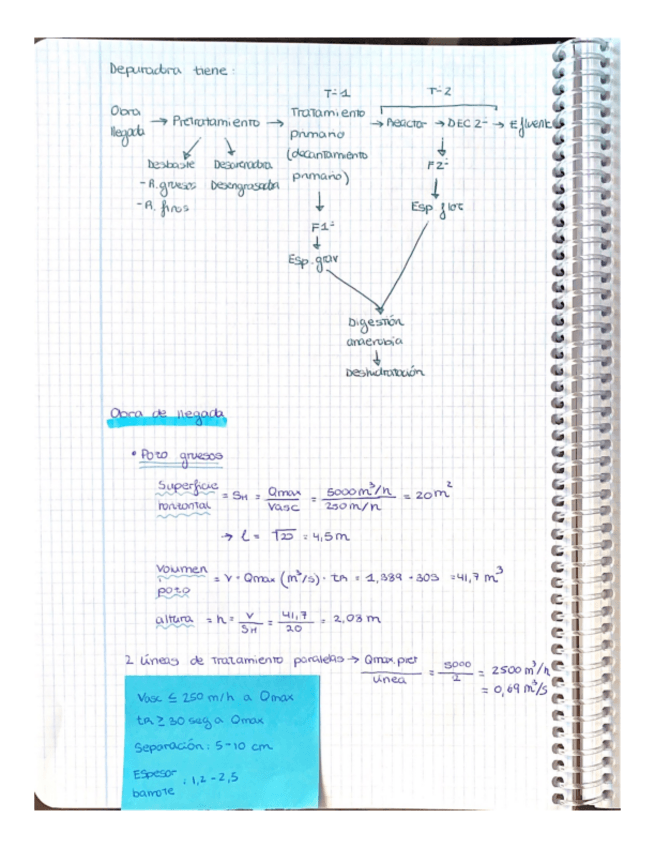 Depuradora tiene:
T-1
T-2
Obra llegada → Pretratamiento → Tratamiento primario (decantamiento primario) → Reactor → DEC 2- → Efluente
Desbaste
- R. gruesos
- R. finos
Desarenadora
Desengrasadora
F1-
Esp. grav
F2-
Esp flot
Digestión
anaerobia
Deshidratación
Obra de llegada
• Pozo gruesos
Superficie horizontal = SH = Qmax / Vasc = 5000 m³/h / 250 m/h = 20 m²
→ L = √20 = 4,5 m
Volumen pozo = V = Qmax (m³/s) · tR = 1,389 · 30s = 41,7 m³
altura = h = V / SH = 41,7 / 20 = 2,03 m
2 líneas de tratamiento paralelas → Qmax.pret / línea = 5000 / 2 = 2500 m³/h
= 0,69 m³/s
Vasc ≤ 250 m/h a Qmax
tR ≥ 30 seg a Qmax
Separación: 5-10 cm
Espesor barrote : 1,2 - 2,5